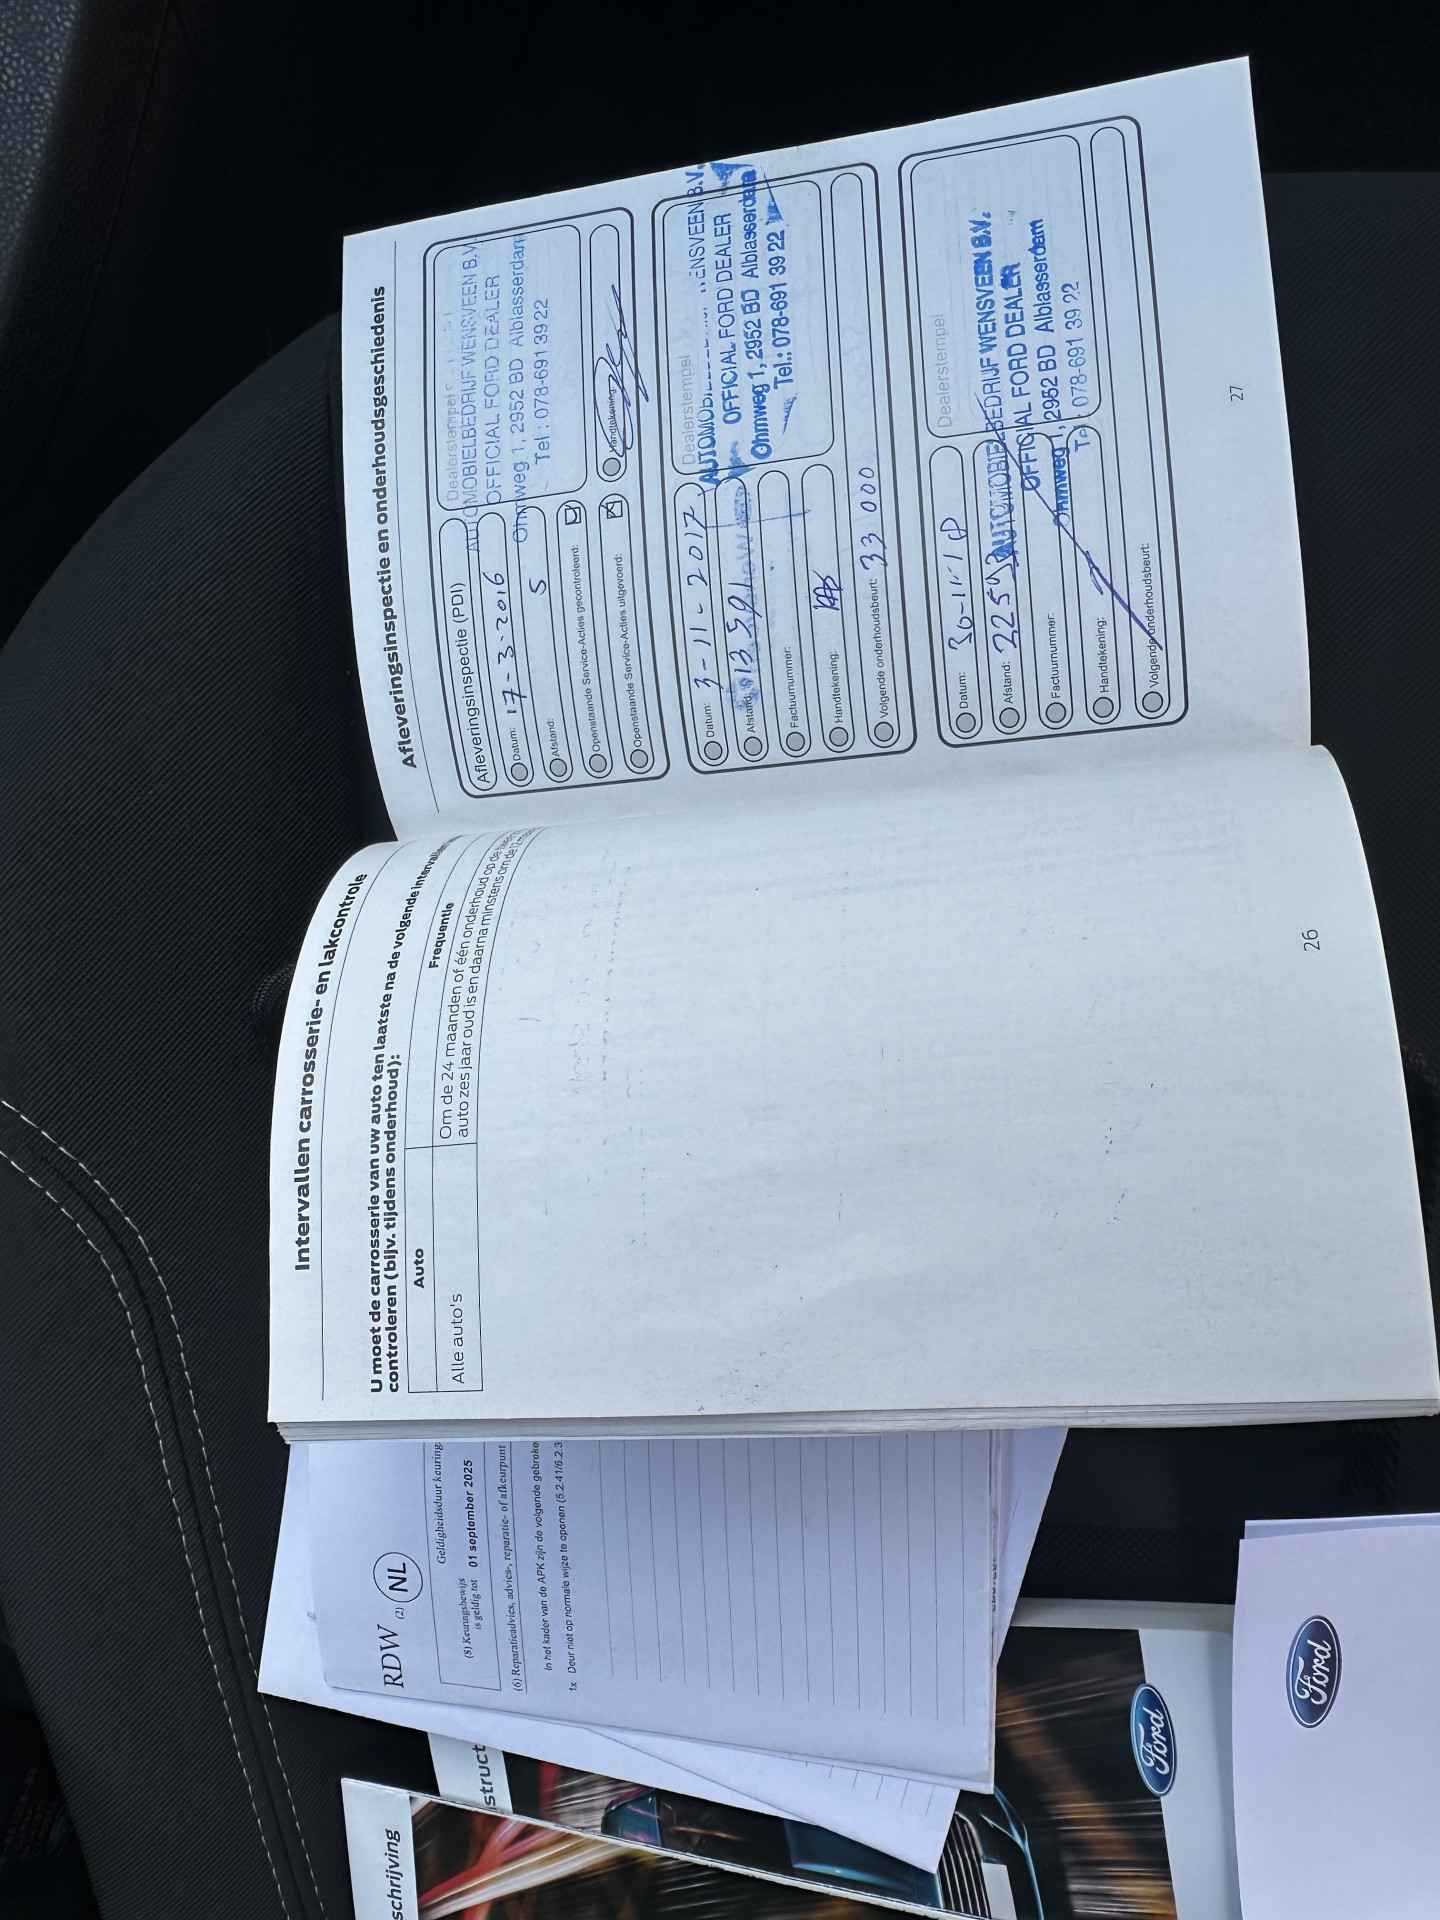 Intervallen carrosserie- en lakcontrole
U moet de carrosserie van uw auto ten laatste na de volgende
controleren (bijv. tijdens onderhoud):
Auto
Frequentie
Alle auto's
Om de 24 maanden of één onderhoud op de
auto zes jaar oud is en daarna minstens om de 12
26
Afleveringsinspectie en onderhoudsgeschiedenis
Afleveringsinspectie (PDI)
Datum: 17-3-2016
Afstand: 5
Openstaande Service-Acties gecontroleerd:
Openstaande Service-Acties uitgevoerd:
Dealerstempel
AUTOMOBIELBEDRIJF WENSVEEN B.V.
OFFICIAL FORD DEALER
Ohmweg 1, 2952 BD Alblasserdam
Tel.: 078-691 39 22
Handtekening:
Datum: 3-11-2017
Afstand:
Factuurnummer:
Handtekening:
Volgende onderhoudsbeurt: 33 000
Dealerstempel
WENSVEEN B.V.
OFFICIAL FORD DEALER
Ohmweg 1, 2952 BD Alblasserdam
Tel.: 078-691 39 22
Datum: 30-11-18
Afstand:
Factuurnummer:
Handtekening:
Volgende onderhoudsbeurt:
Dealerstempel
AUTOMOBIELBEDRIJF WENSVEEN B.V.
OFFICIAL FORD DEALER
Ohmweg 1, 2952 BD Alblasserdam
078-691 39 22
27
RDW (2) NL
Geldigheidsduur keuring
(8) Keuringsbewijs
is geldig tot 01 september 2025
(6) Reparatieadvies, advies-, reparatie- of afkeurpunt
In het kader van de APK zijn de volgende gebreke
1x Deur niet op normale wijze te openen (5.2.41/6.2.3
struct
schrijving
Ford
Ford